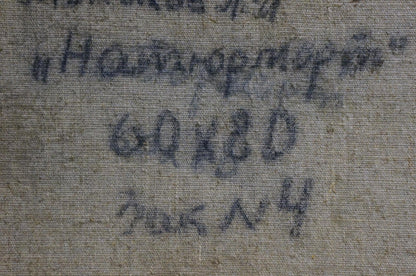 „Натюрморт"
60х80
Зак N 4